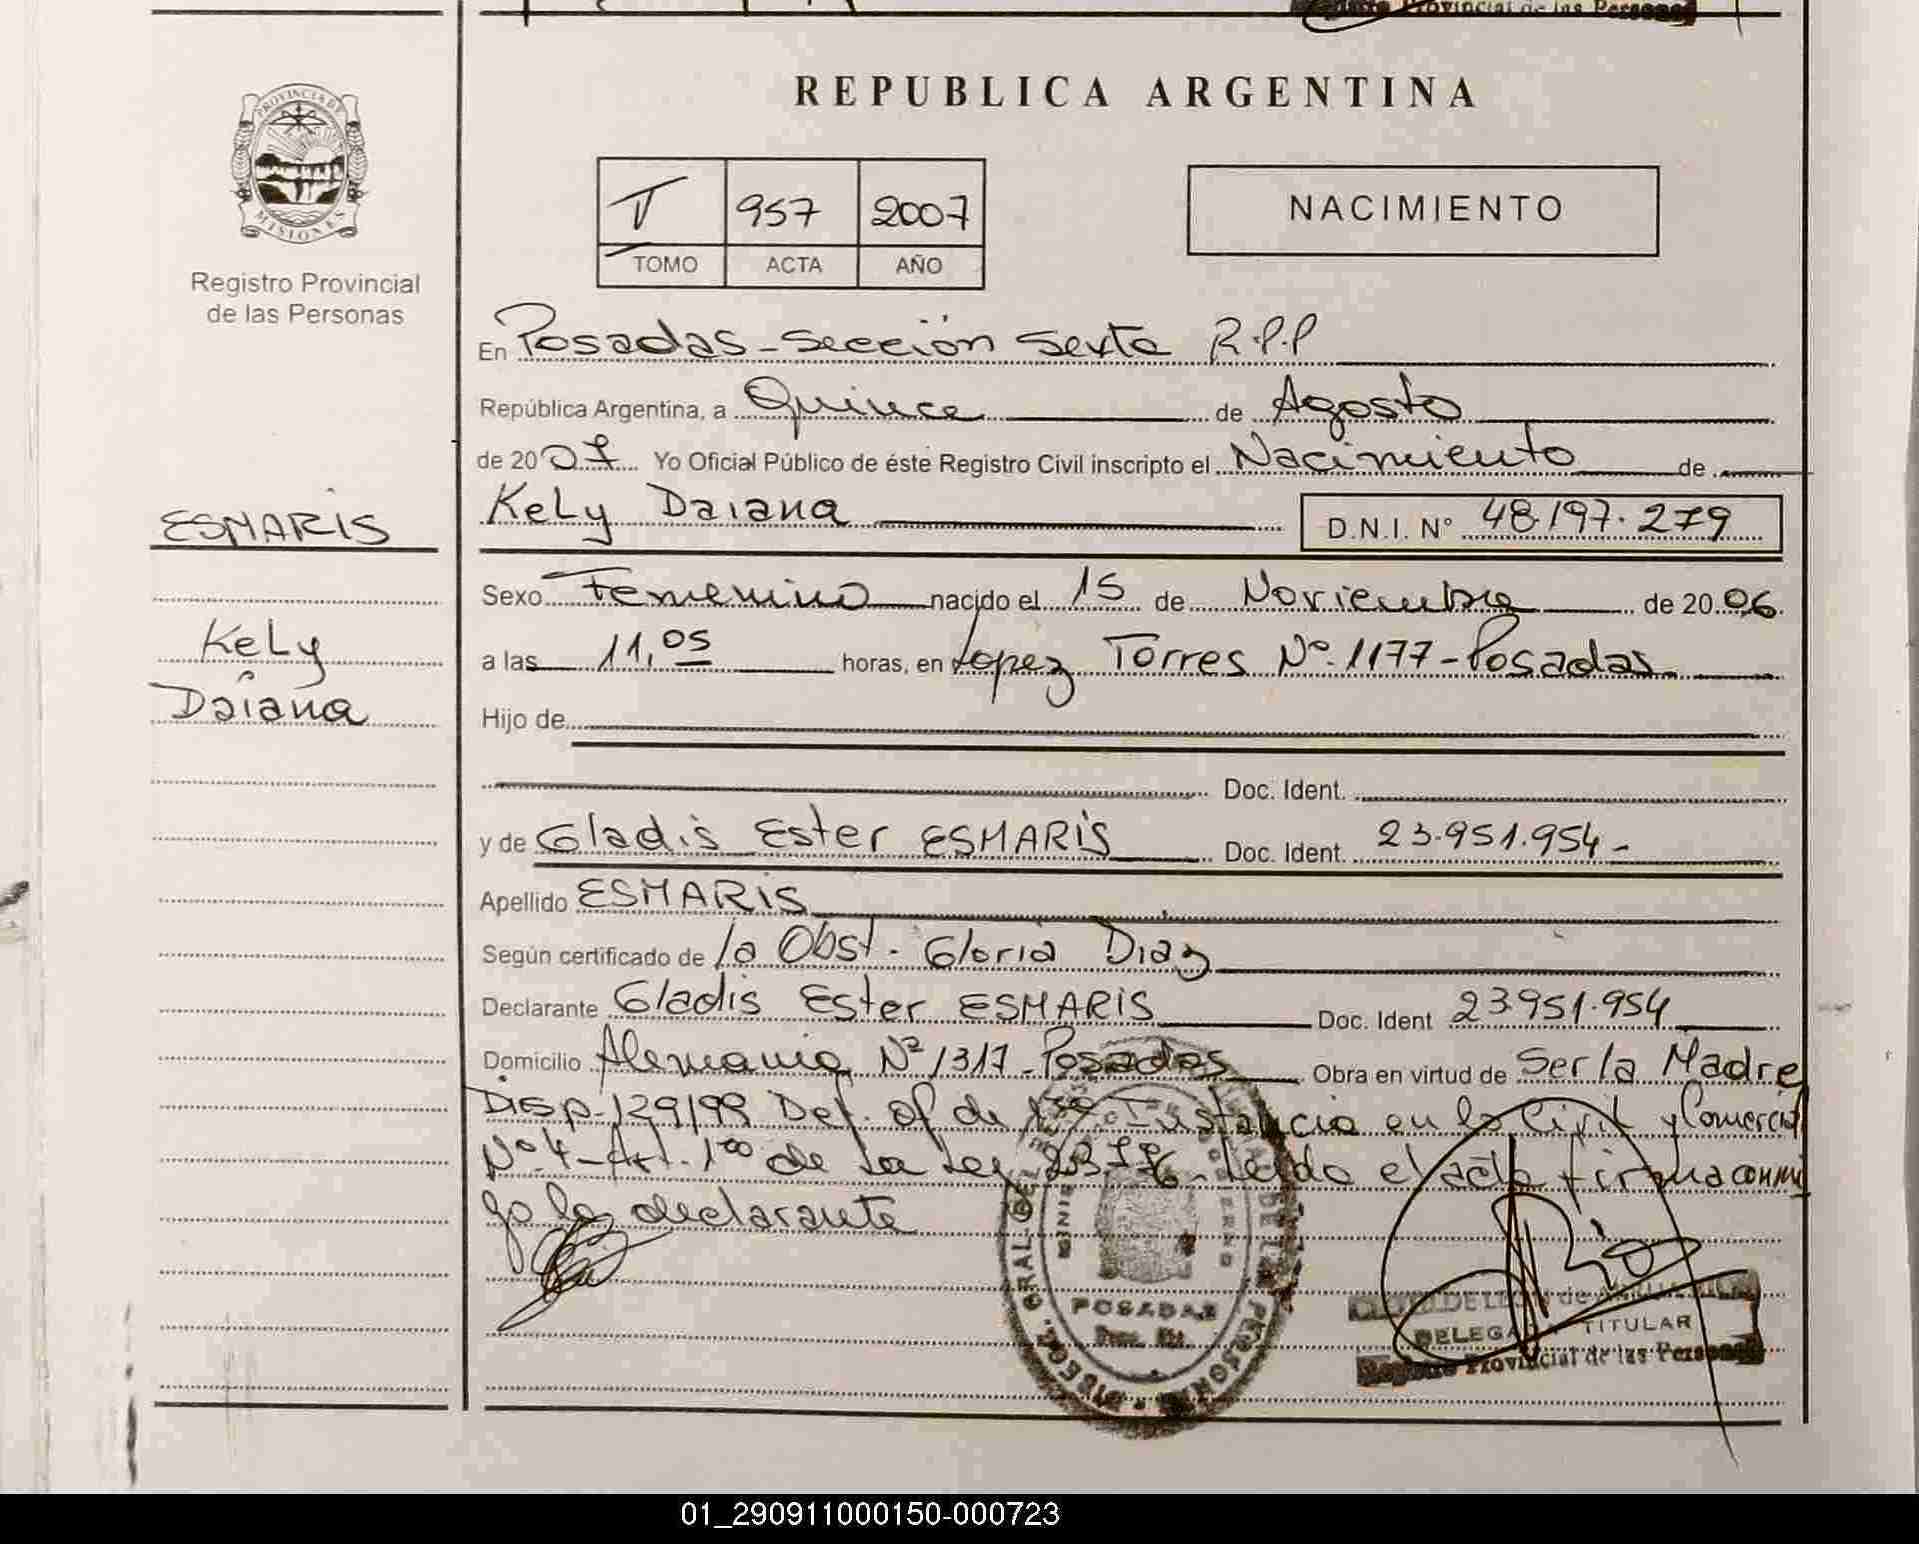 Provincial de las Personas
REPUBLICA ARGENTINA
PROVINCIA DE
MISIONES
Registro Provincial
de las Personas
957 2007
TOMO ACTA AÑO
NACIMIENTO
En Posadas - Sección Sexta R.P.P
República Argentina, a Quince de Agosto
de 2007 Yo Oficial Público de éste Registro Civil inscripto el Nacimiento de
ESMARIS
Kely Daiana D.N.I. N° 48.197.279
Sexo Femenino nacido el 15 de Noviembre de 2006
Kely
Daiana
a las 11,05 horas, en Lopez Torres N°. 1177 - Posadas
Hijo de
Doc. Ident.
y de Gladis Ester ESMARIS Doc. Ident. 23.951.954 -
Apellido ESMARIS
Según certificado de la Obst. Gloria Diaz
Declarante Gladis Ester ESMARIS Doc. Ident 23951.954
Domicilio Alemania N° 1317 - Posadas Obra en virtud de Ser la Madre
Disp. 129/99 Def. of de 1ra. Instancia en lo Civil y Comercial
N° 4 - Art. 1ro de la Ley 23.776. Leído el acta firma conmi
go la declarante
POSADAS
TITULAR
Registro Provincial de las Personas
01_290911000150-000723